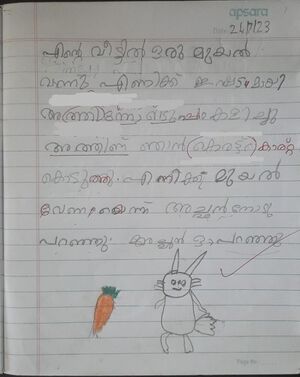 apsara
Date: 24/7/23
എന്റെ വീട്ടിൽ ഒരു മുയൽ
വന്നു. എനിക്ക് ഇഷ്ടമായി
കളിച്ചു
അതിന് ഞാൻ (കാരട്ട്) കാരറ്റ്
കൊടുത്തു. എനിക്ക് മുയൽ
വേണമെന്ന് അച്ഛനോടു
പറഞ്ഞു. അച്ഛൻ
Page No.